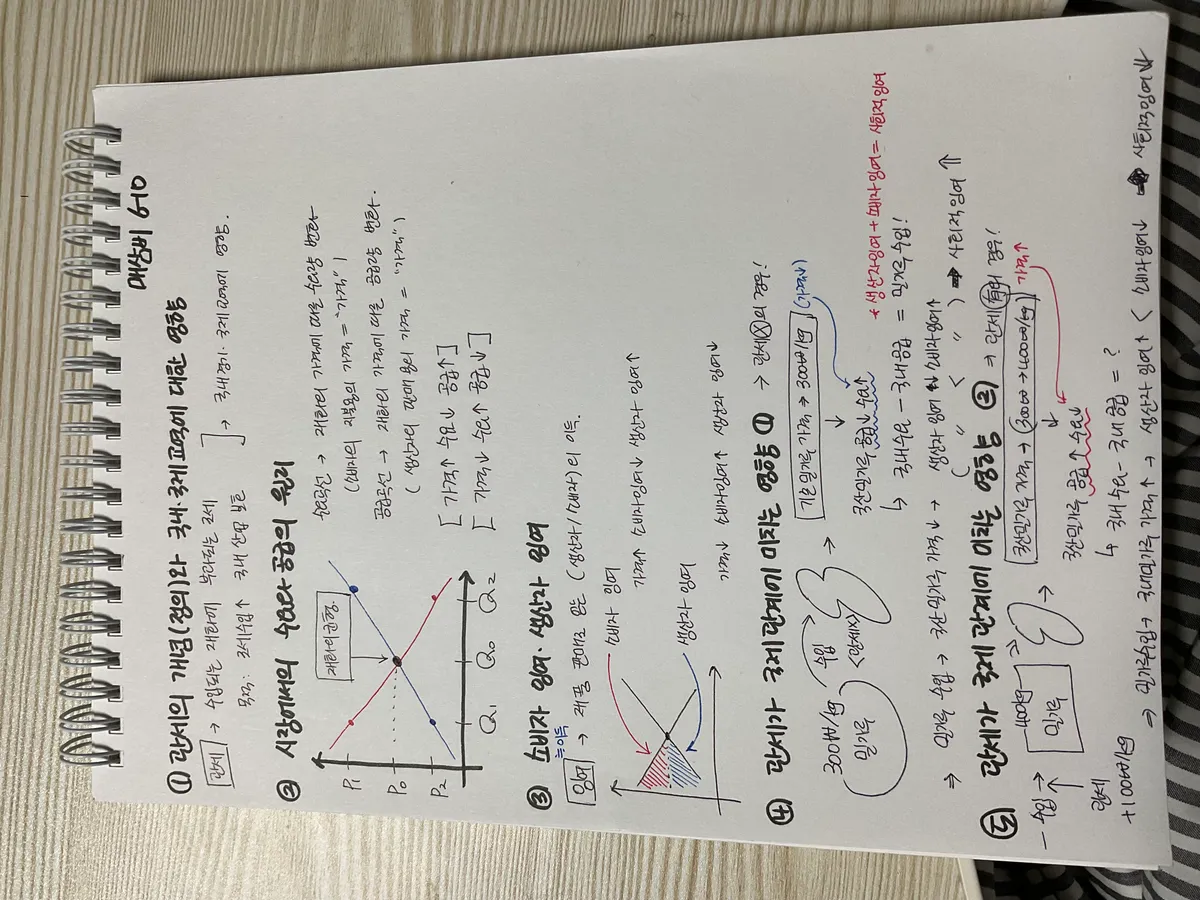 매삼비 6-10
① 관세의 개념(정의)와 국내·국제 교역에 대한 영향
관세 → 수입되는 재화에 부과되는 조세
목적: 조세수입↑ 국내 산업 보호
→ 국내경기·국제교역에 영향.
② 시장에서의 수요와 공급의 원리
재화의 균형
P₁
P₀
P₂
Q₁ Q₀ Q₂
수요곡선 → 재화의 가격에 따른 수요량 변화
(소비자의 지불용의 가격 = "가격")
공급곡선 → 재화의 가격에 따른 공급량 변화.
(생산자의 판매 용의 가격 = "가격")
[ 가격↑ 수요↓ 공급↑ ]
[ 가격↓ 수요↑ 공급↓ ]
③ 소비자 잉여·생산자 잉여
=이득
잉여 → 제품 판매로 얻는 (생산자/소비자)의 이득.
소비자 잉여
가격↑ 소비자잉여↓ 생산자 잉여↑
생산자 잉여
가격↓ 소비자잉여↑ 생산자 잉여↓
④ 관세가 국제관계에 미치는 영향 ① → 관세ⓧ의 경우!
300원/kg
밀가루
수입
<관세X>
밀가루가격 → 300원/kg (가격↓)
↓
국산밀가루 공급↓ 수요↑
↳ 국내수요 - 국내공급 = 밀가루수입!
* 생산자잉여 + 소비자잉여 = 사회적잉여
⇒ 밀가루 수입 → 국산 밀가루 가격↓ → 생산자 잉여↓ 소비자잉여↑
( 〃 < 〃 ) → 사회적잉여⇈
⑤ 관세가 국제관계에 미치는 영향 ② → 관세부과 시의 경우!
- 수입 →
↑
관세
+100원/kg
밀가루
400원/kg
국산밀가루가격 → 300원 → 400원/kg 가격↑
↓
국산밀가루 공급↑ 수요↓
↳ 국내수요 - 국내공급 = ?
⇒ 밀가루수입 → 국내밀가루 가격↑ → 생산자 잉여↑ < 소비자잉여↓ → 사회적잉여⇊